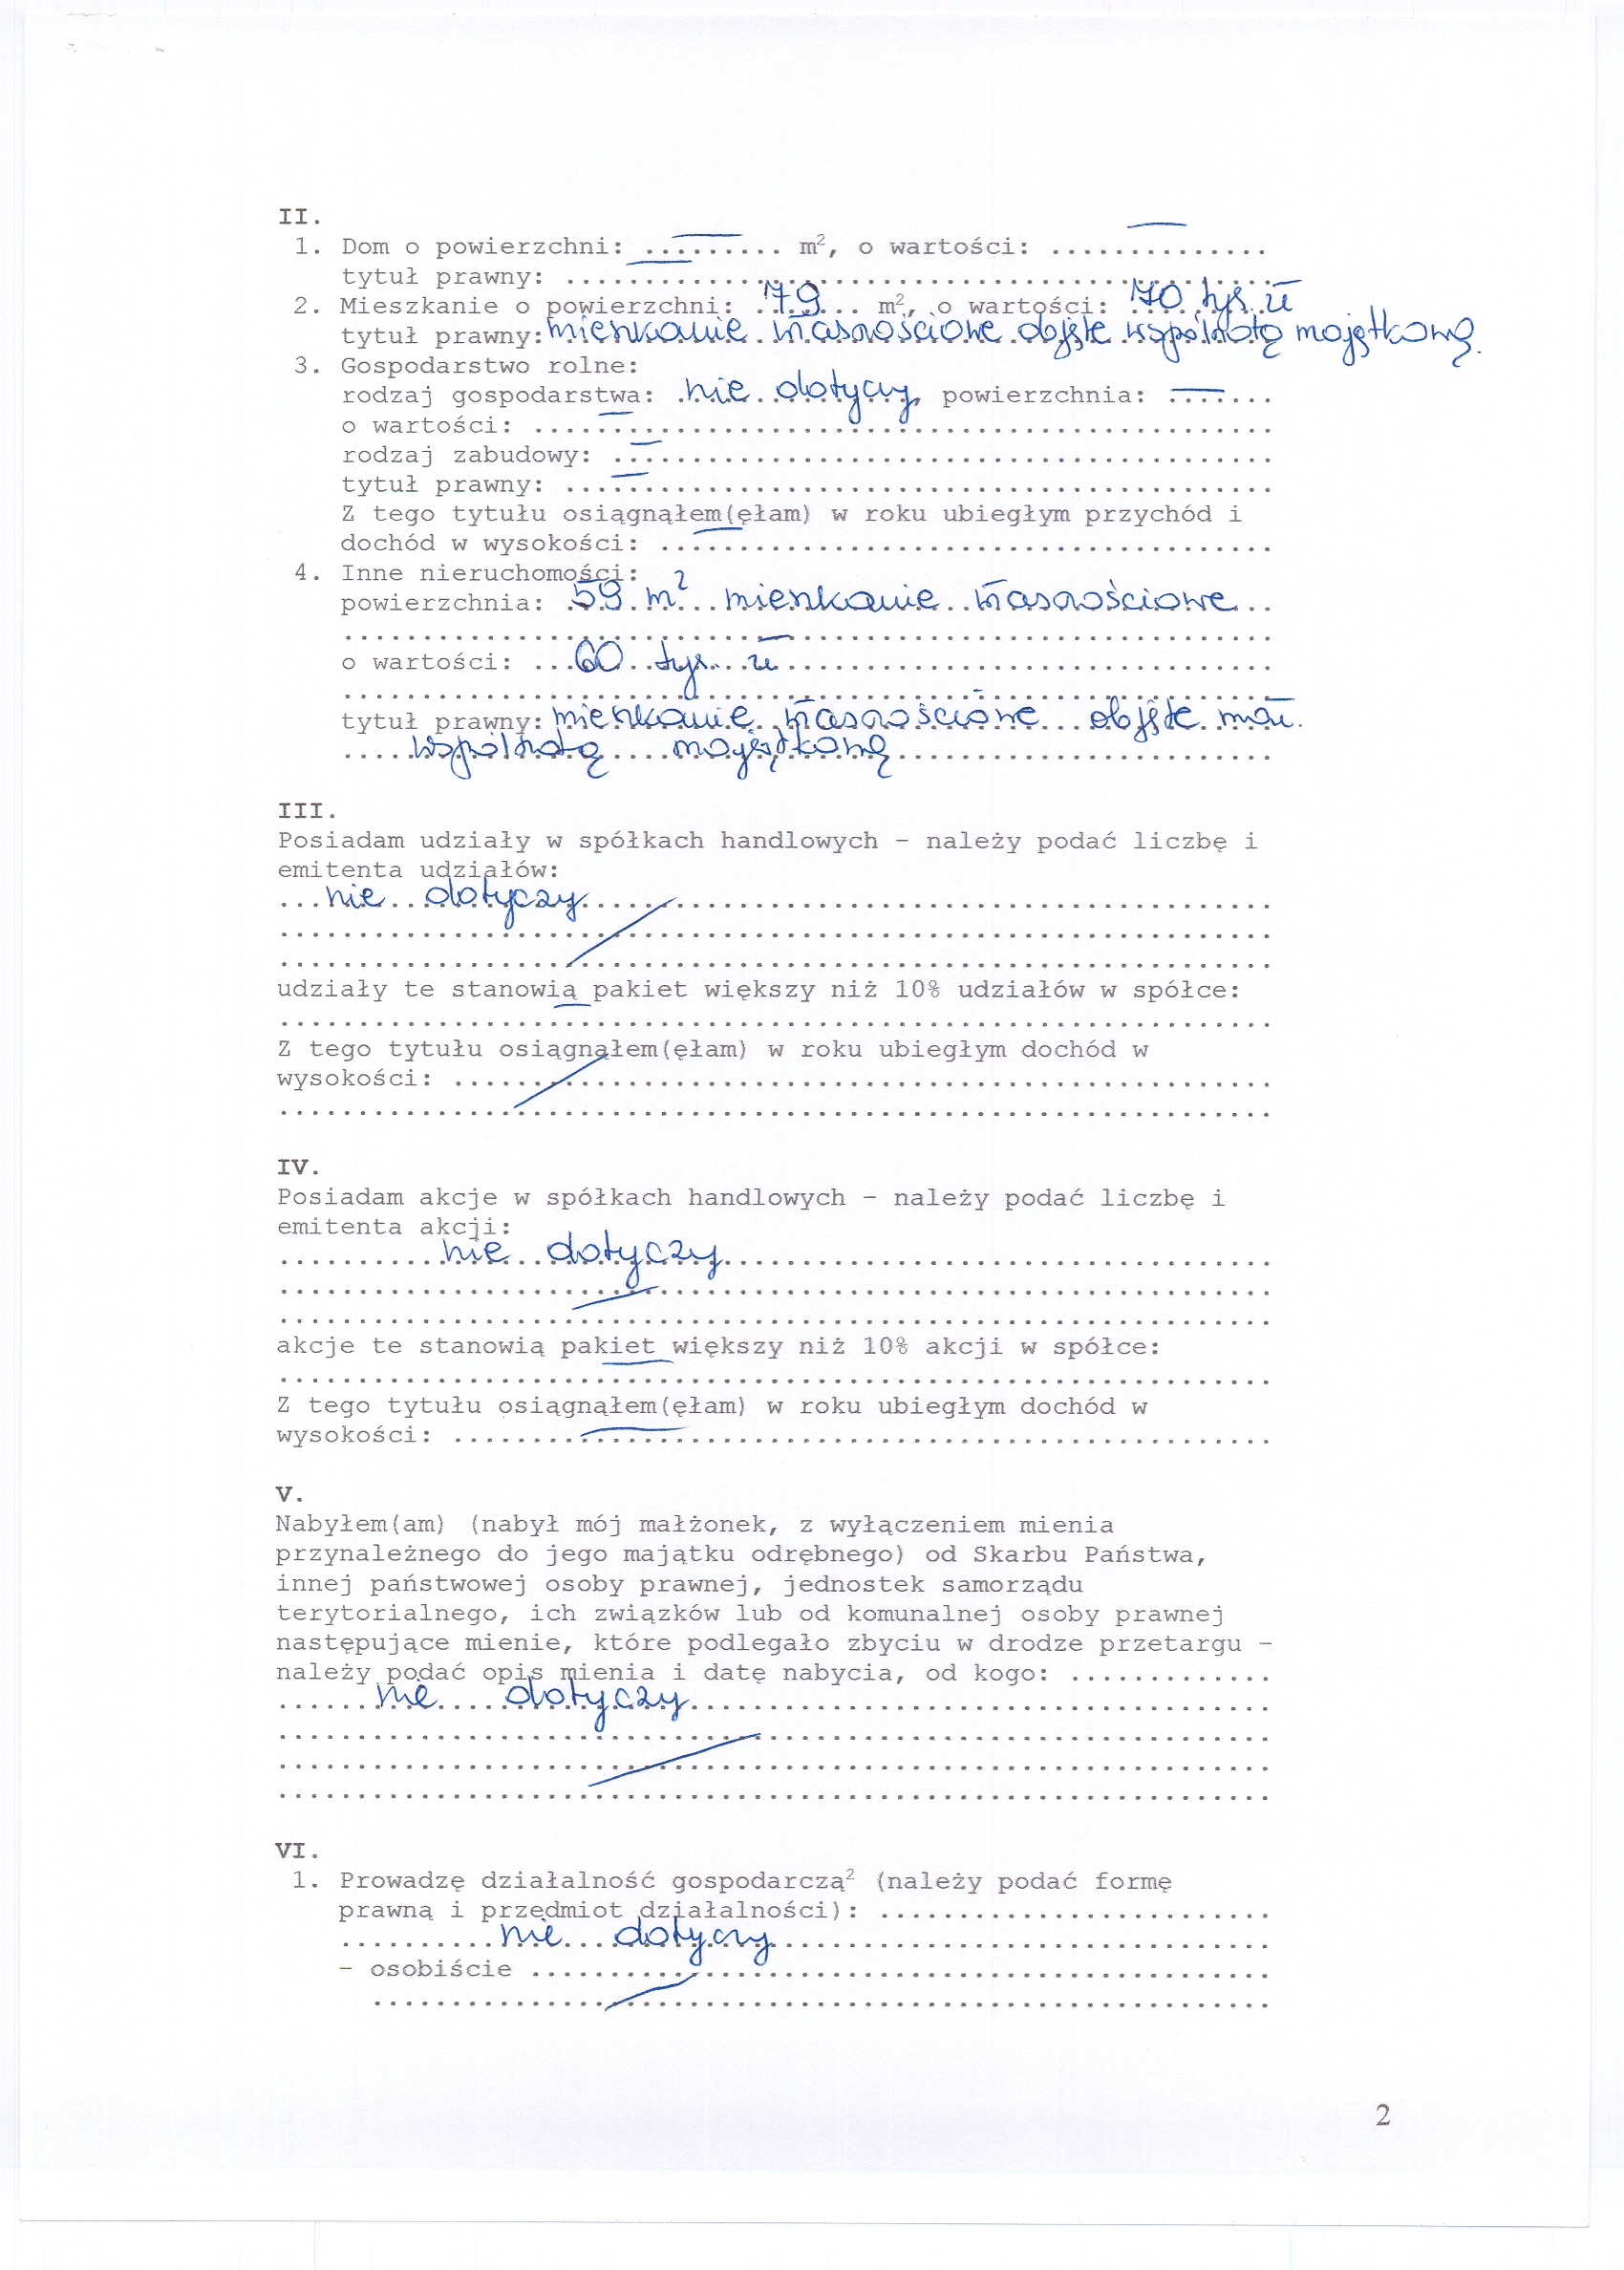 II.
1. Dom o powierzchni: ......... m², o wartości: ..............
tytuł prawny: .............................................
2. Mieszkanie o powierzchni: 79 m², o wartości: 70 tys. zł
tytuł prawny: mieszkanie własnościowe objęte wspólnotą majątkową.
3. Gospodarstwo rolne:
rodzaj gospodarstwa: nie dotyczy, powierzchnia: — .......
o wartości: — ...............................................
rodzaj zabudowy: — ..........................................
tytuł prawny: — .............................................
Z tego tytułu osiągnąłem(ęłam) w roku ubiegłym przychód i
dochód w wysokości: — .......................................
4. Inne nieruchomości:
powierzchnia: 59 m² mieszkanie własnościowe
...........................................................
o wartości: 60 tys. zł
...........................................................
tytuł prawny: mieszkanie własnościowe objęte
wspólnotą majątkową
III.
Posiadam udziały w spółkach handlowych – należy podać liczbę i
emitenta udziałów:
nie dotyczy
...............................................................
...............................................................
udziały te stanowią pakiet większy niż 10% udziałów w spółce:
...............................................................
Z tego tytułu osiągnąłem(ęłam) w roku ubiegłym dochód w
wysokości: ....................................................
...............................................................
IV.
Posiadam akcje w spółkach handlowych – należy podać liczbę i
emitenta akcji:
nie dotyczy
...............................................................
...............................................................
akcje te stanowią pakiet większy niż 10% akcji w spółce:
...............................................................
Z tego tytułu osiągnąłem(ęłam) w roku ubiegłym dochód w
wysokości: ....................................................
V.
Nabyłem(am) (nabył mój małżonek, z wyłączeniem mienia
przynależnego do jego majątku odrębnego) od Skarbu Państwa,
innej państwowej osoby prawnej, jednostek samorządu
terytorialnego, ich związków lub od komunalnej osoby prawnej
następujące mienie, które podlegało zbyciu w drodze przetargu –
należy podać opis mienia i datę nabycia, od kogo: .............
nie dotyczy
...............................................................
...............................................................
...............................................................
VI.
1. Prowadzę działalność gospodarczą² (należy podać formę
prawną i przedmiot działalności): .........................
nie dotyczy
– osobiście ...............................................
.........................................................
2